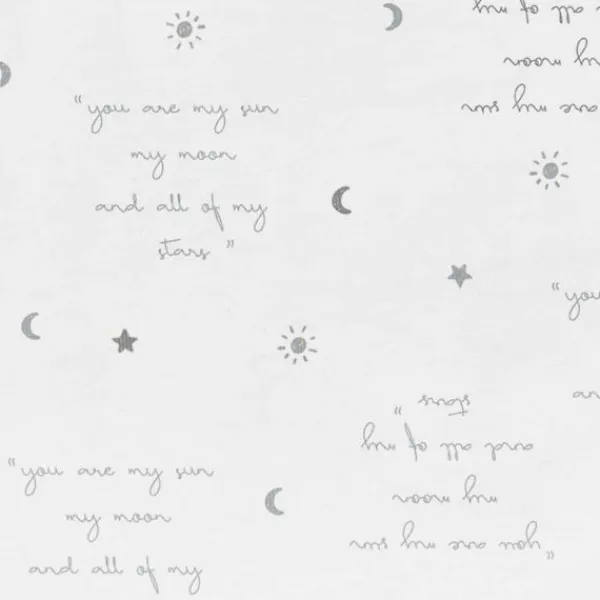 "you are my sun
my moon
and all of my
stars"
my
all of my
my moon
are my sun
"you
an
"you are my sun
my moon
and all of my
stars"
"you are my sun
my moon
and all of my